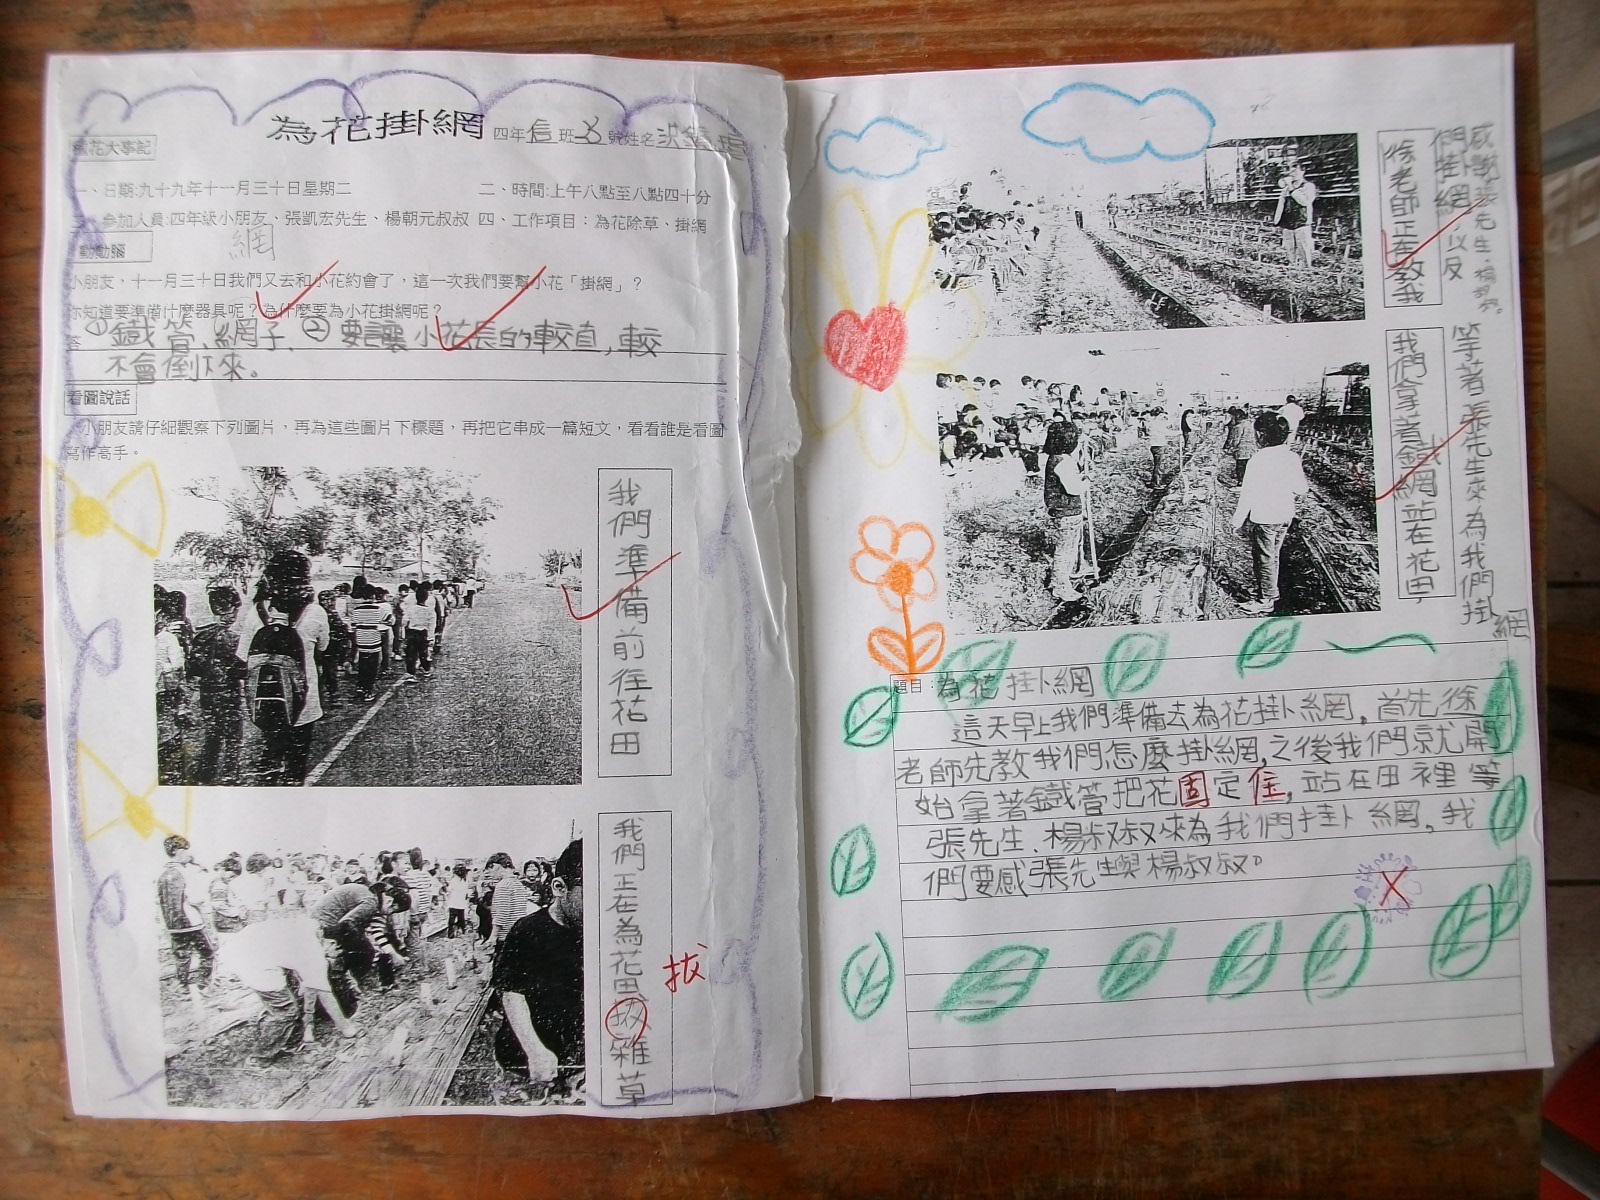 為花掛網 四年信班 號姓名洪
種花大事記
一、日期:九十九年十一月三十日星期二 二、時間:上午八點至八點四十分
三、參加人員:四年級小朋友、張凱宏先生、楊朝元叔叔 四、工作項目：為花除草、掛網
動動腦
網
小朋友，十一月三十日我們又去和小花約會了，這一次我們要幫小花「掛網」？
你知道要準備什麼器具呢？為什麼要為小花掛網呢？
答 ①鐵管、網子、②要讓小花長的較直，較
不會倒下來。
看圖說話
小朋友請仔細觀察下列圖片，再為這些圖片下標題，再把它串成一篇短文，看看誰是看圖
寫作高手。
我們準備前往花田
我們正在為花田拔雜草
拔
徐老師正在教我
們掛網，以及
感謝張先生、楊叔叔。
我們拿著鐵網站在花田
等著張先生來為我們掛
網
題目：為花掛網
這天早上我們準備去為花掛網，首先徐
老師先教我們怎麼掛網，之後我們就開
始拿著鐵管把花固定住，站在田裡等
張先生、楊叔叔來為我們掛網，我
們要感張先生與楊叔叔。